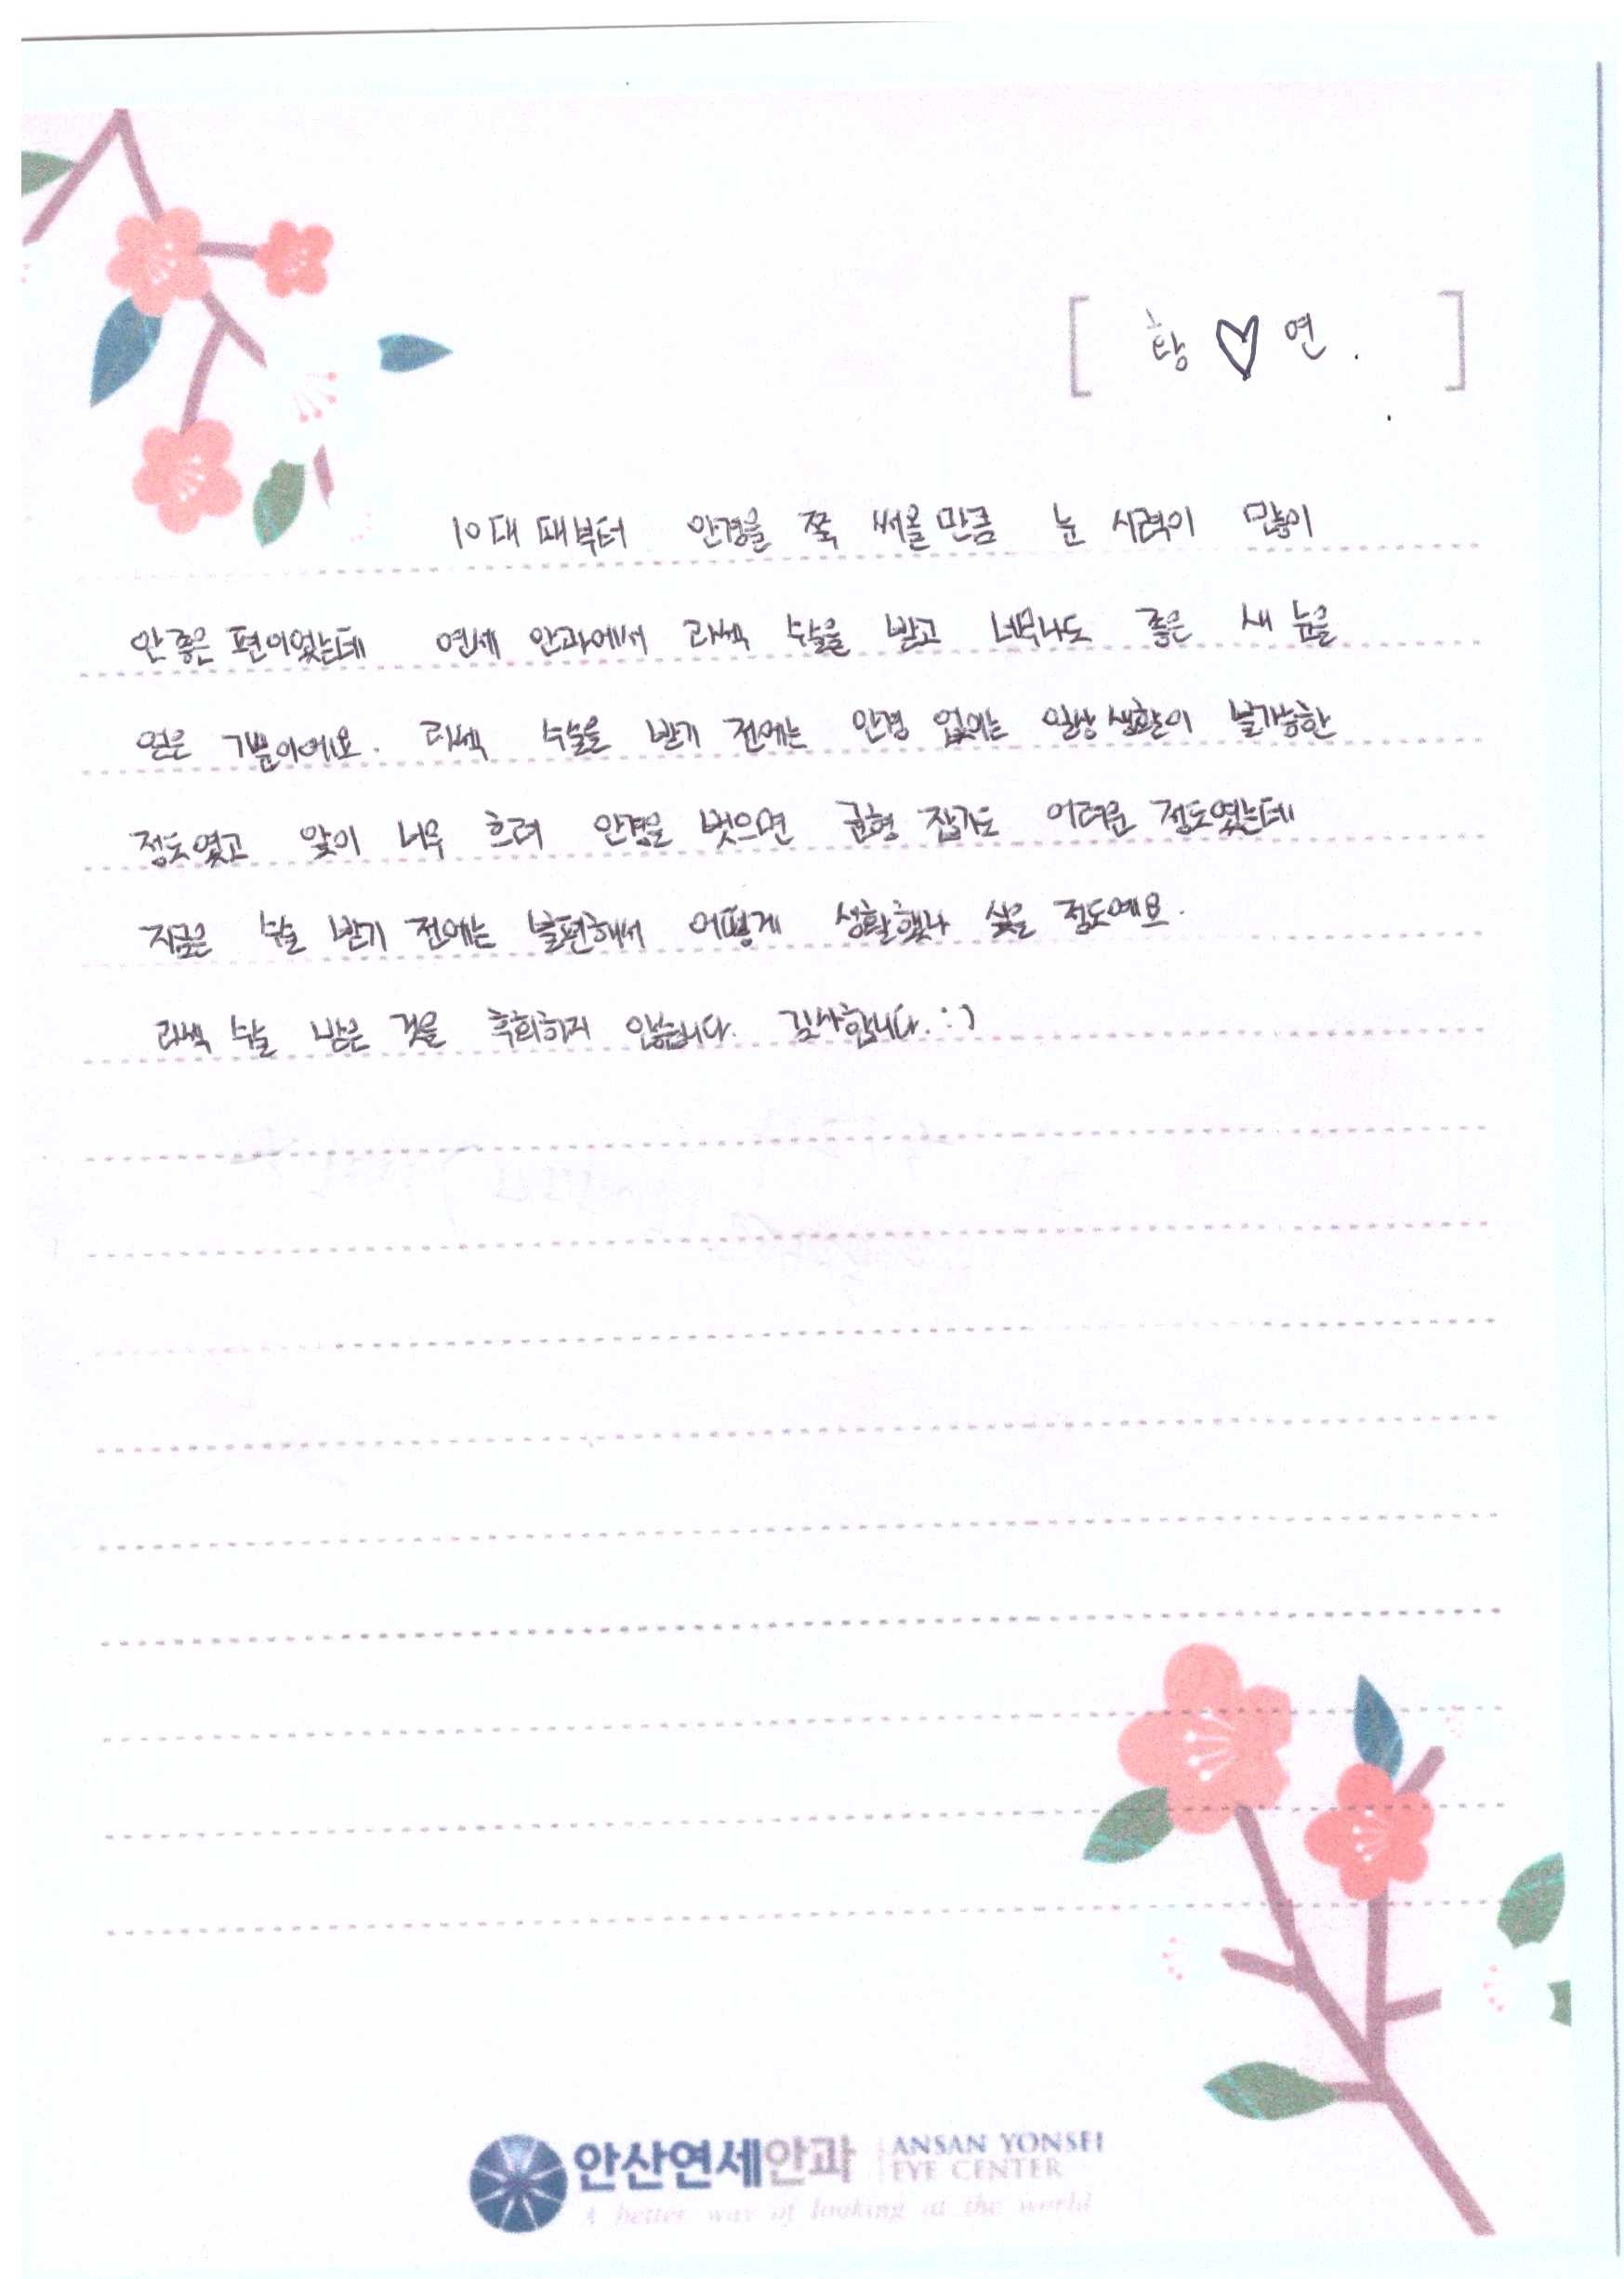 [ 황♡연. ]
10대 때부터 안경을 쭉 써올만큼 눈 시력이 많이
안 좋은 편이었는데 연세 안과에서 라섹 수술을 받고 너무나도 좋은 새 눈을
얻은 기분이에요. 라섹 수술을 받기 전에는 안경 없이는 일상 생활이 불가능한
정도였고 앞이 너무 흐려 안경을 벗으면 균형 잡기도 어려운 정도였는데
지금은 수술 받기 전에는 불편해서 어떻게 생활했나 싶을 정도예요.
라섹 수술 받은 것을 후회하지 않습니다. 감사합니다. :)
안산연세안과 ANSAN YONSEI
EYE CENTER
A better way of looking at the world